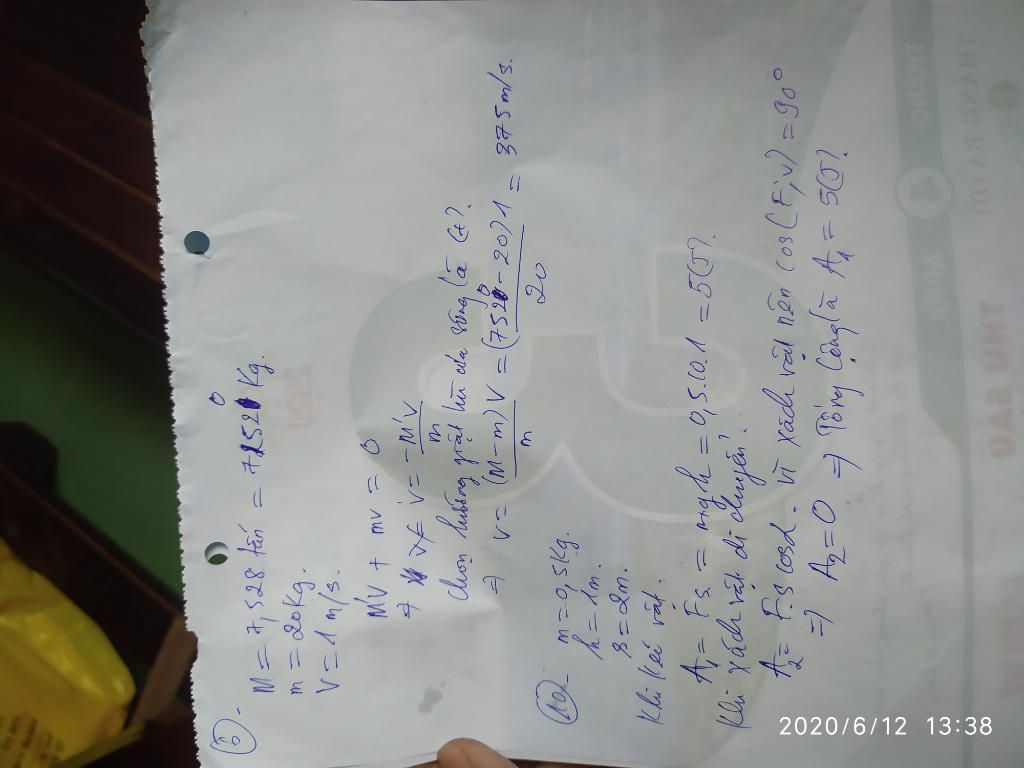 M = 7,528 tấn = 7520 Kg.
m = 20 Kg.
V = 1 m/s.
M'V + mv = 0
⇒ v = -M'V/m
Chọn hướng giật lùi của súng là (+).
⇒ v = (M-m)V/m = (7520-20).1/20 = 375 m/s.
10. m = 0,5 Kg.
h = 1m.
s = 2m.
Khi kéo vật.
A₁ = F.s = mgh = 0,5.10.1 = 5(J).
Khi xách vật di chuyển.
A₂ = F.s cosα. Vì xách vật nên cos(F,v) = 90°
⇒ A₂ = 0 ⇒ Tổng công là A₁ = 5(J).
THÁNG 4 APRIL
THỨ SÁU
2020/6/12 13:38